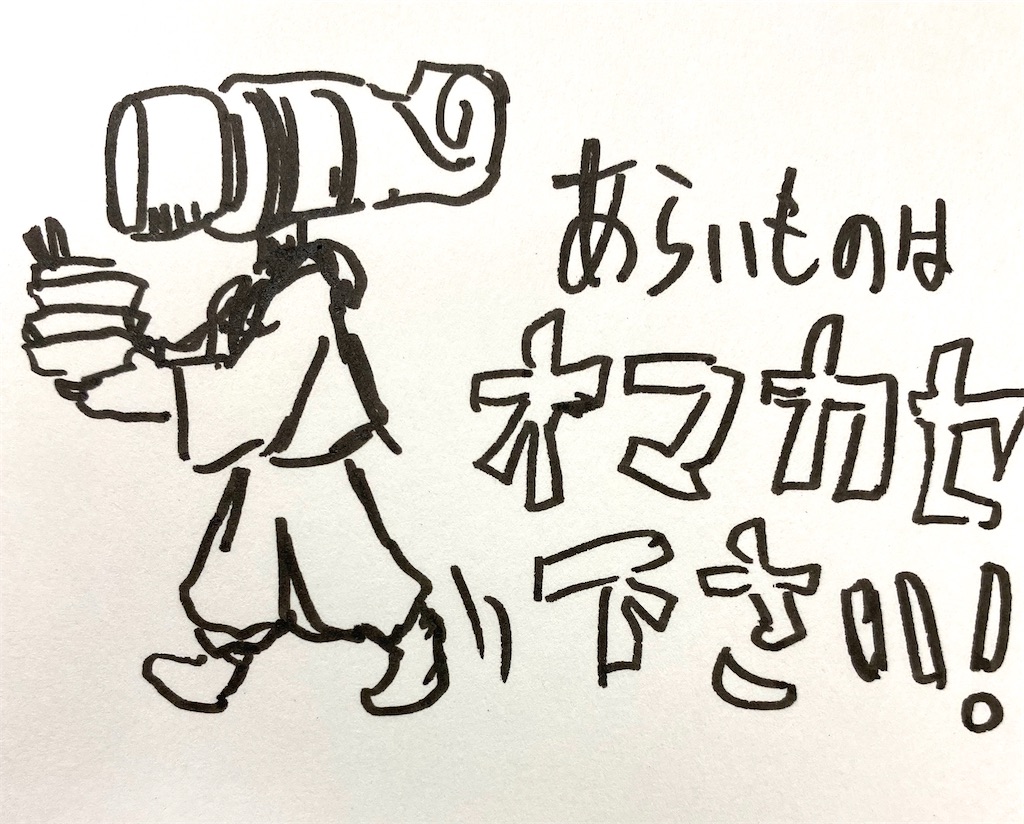 あらいものは
オマカセ
下さい!